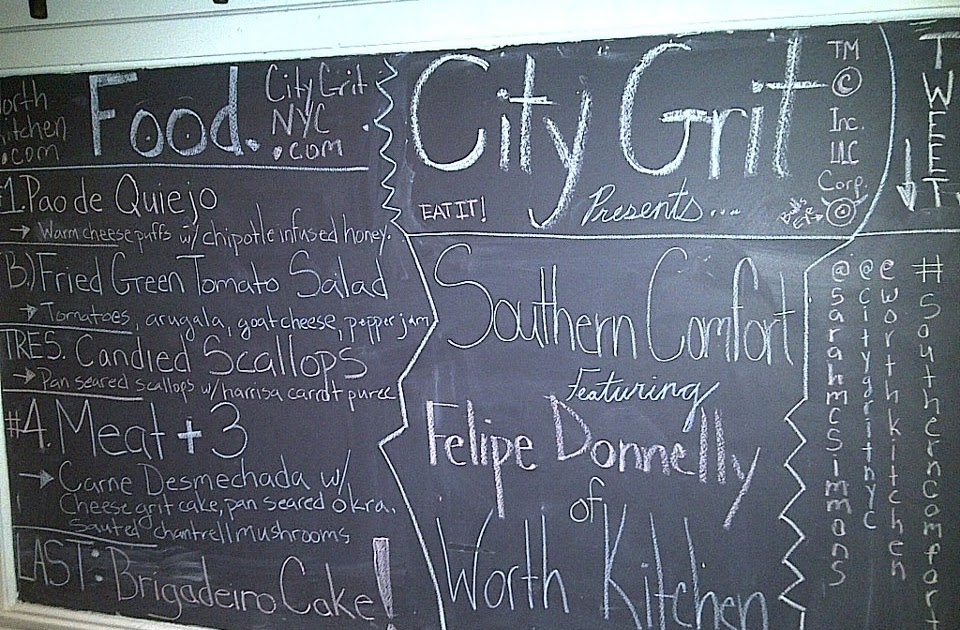 Food.
CityGrit
NYC
.com
#1. Pao de Quiejo
→ Warm cheese puffs w/ chipotle infused honey.
B.) Fried Green Tomato Salad
→ Tomatoes, arugala, goat cheese, pepper jam
TRES. Candied Scallops
→ Pan seared scallops w/ harrisa carrot puree
#4. Meat + 3
→ Carne Desmechada w/
Cheese grit cake, pan seared okra.
Sauted chantrell mushrooms
LAST: Brigadeiro Cake!
City Grit
EAT IT!
Presents...
TM
©
Inc.
LLC
Corp.
Southern Comfort
Featuring
Felipe Donnelly
of
Worth Kitchen
TWEET
@sarahmcsimmons
@citygritnyc
@worthkitchen
#Southerncomfort